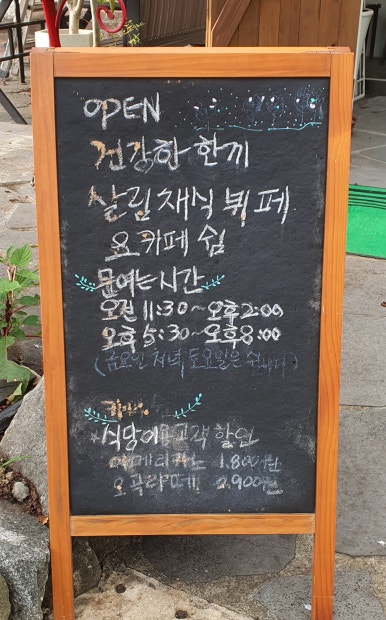 OPEN
건강한 한끼
살림채식뷔페
요카페쉼
문여는시간
오전 11:30~오후2:00
오후 5:30~오후8:00
(금요일 저녁, 토요일은 쉬니다)
식당이용고객 할인
아메리카노 1.800원
오곡라떼 2.900원